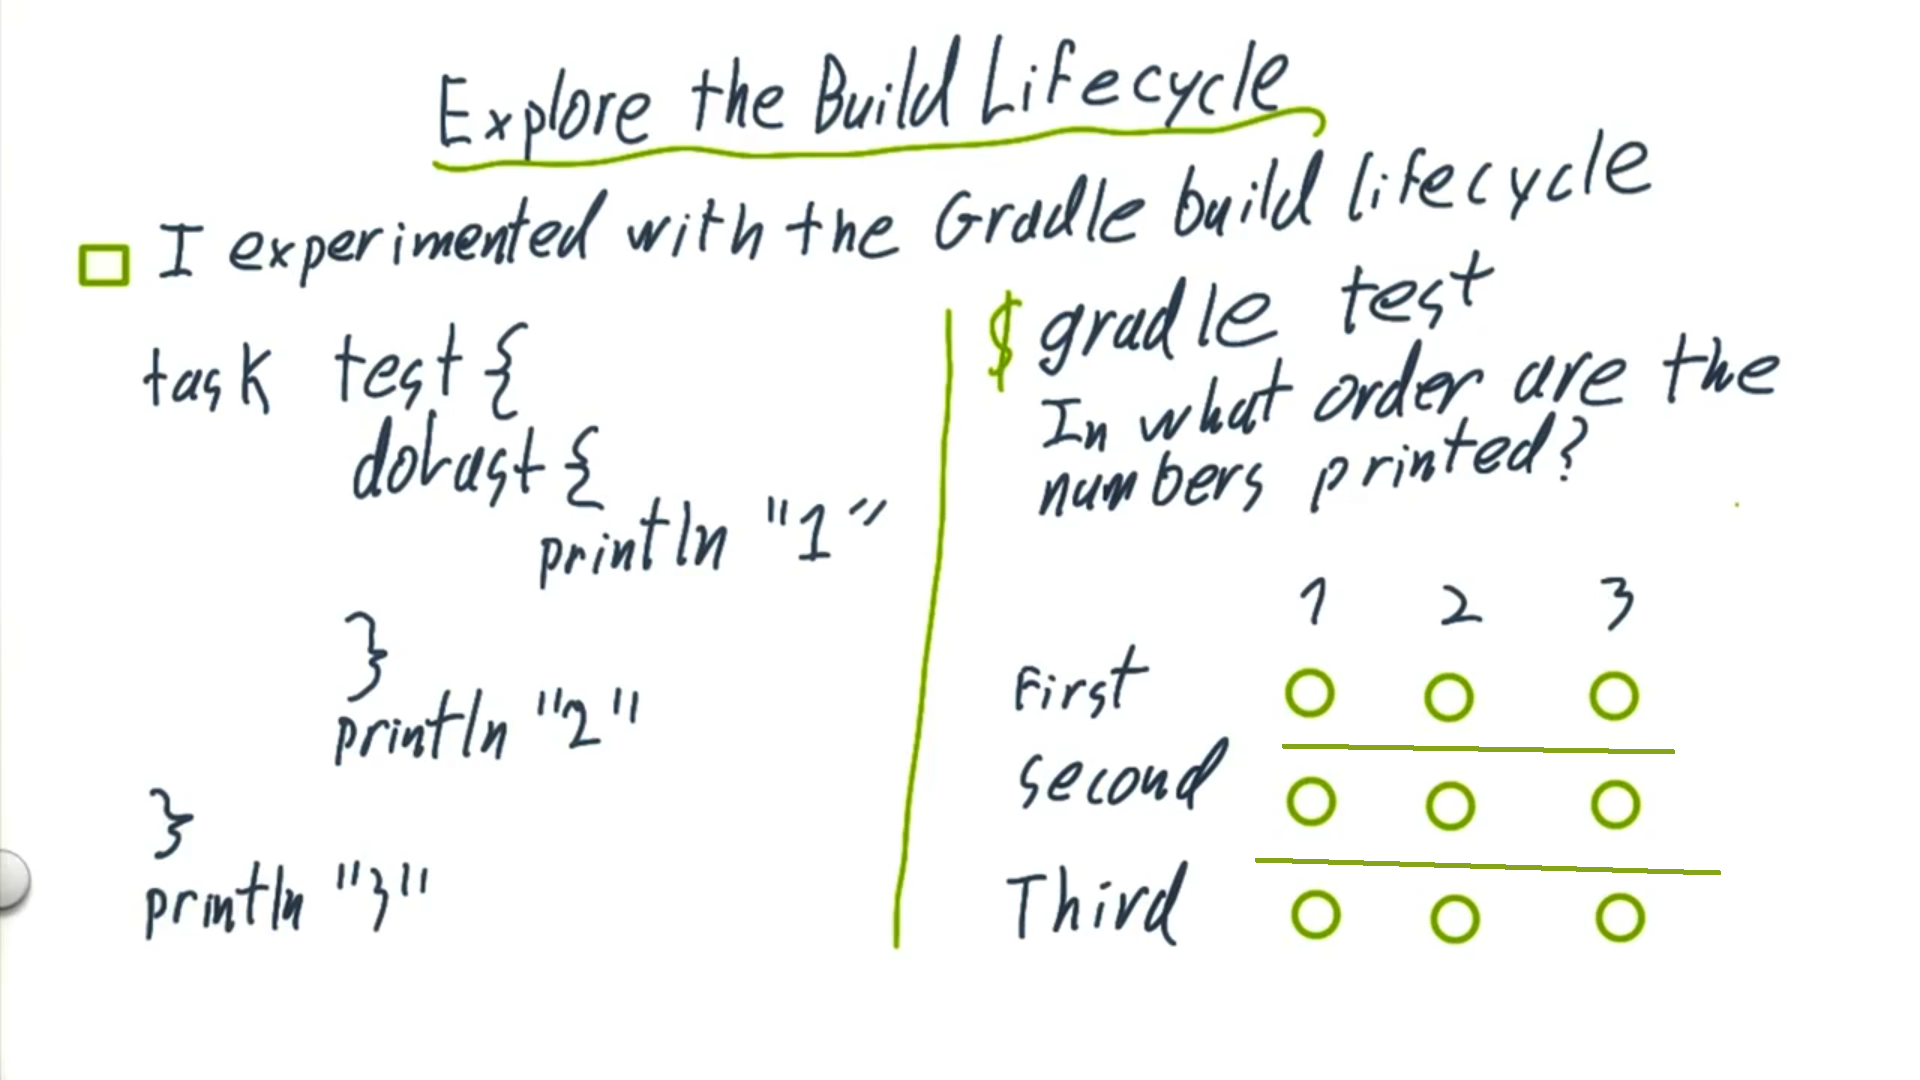 Explore the Build Lifecycle
I experimented with the Gradle build lifecycle
task test {
doLast {
println "1"
}
println "2"
}
println "3"
$ gradle test
In what order are the
numbers printed?
1 2 3
First
Second
Third